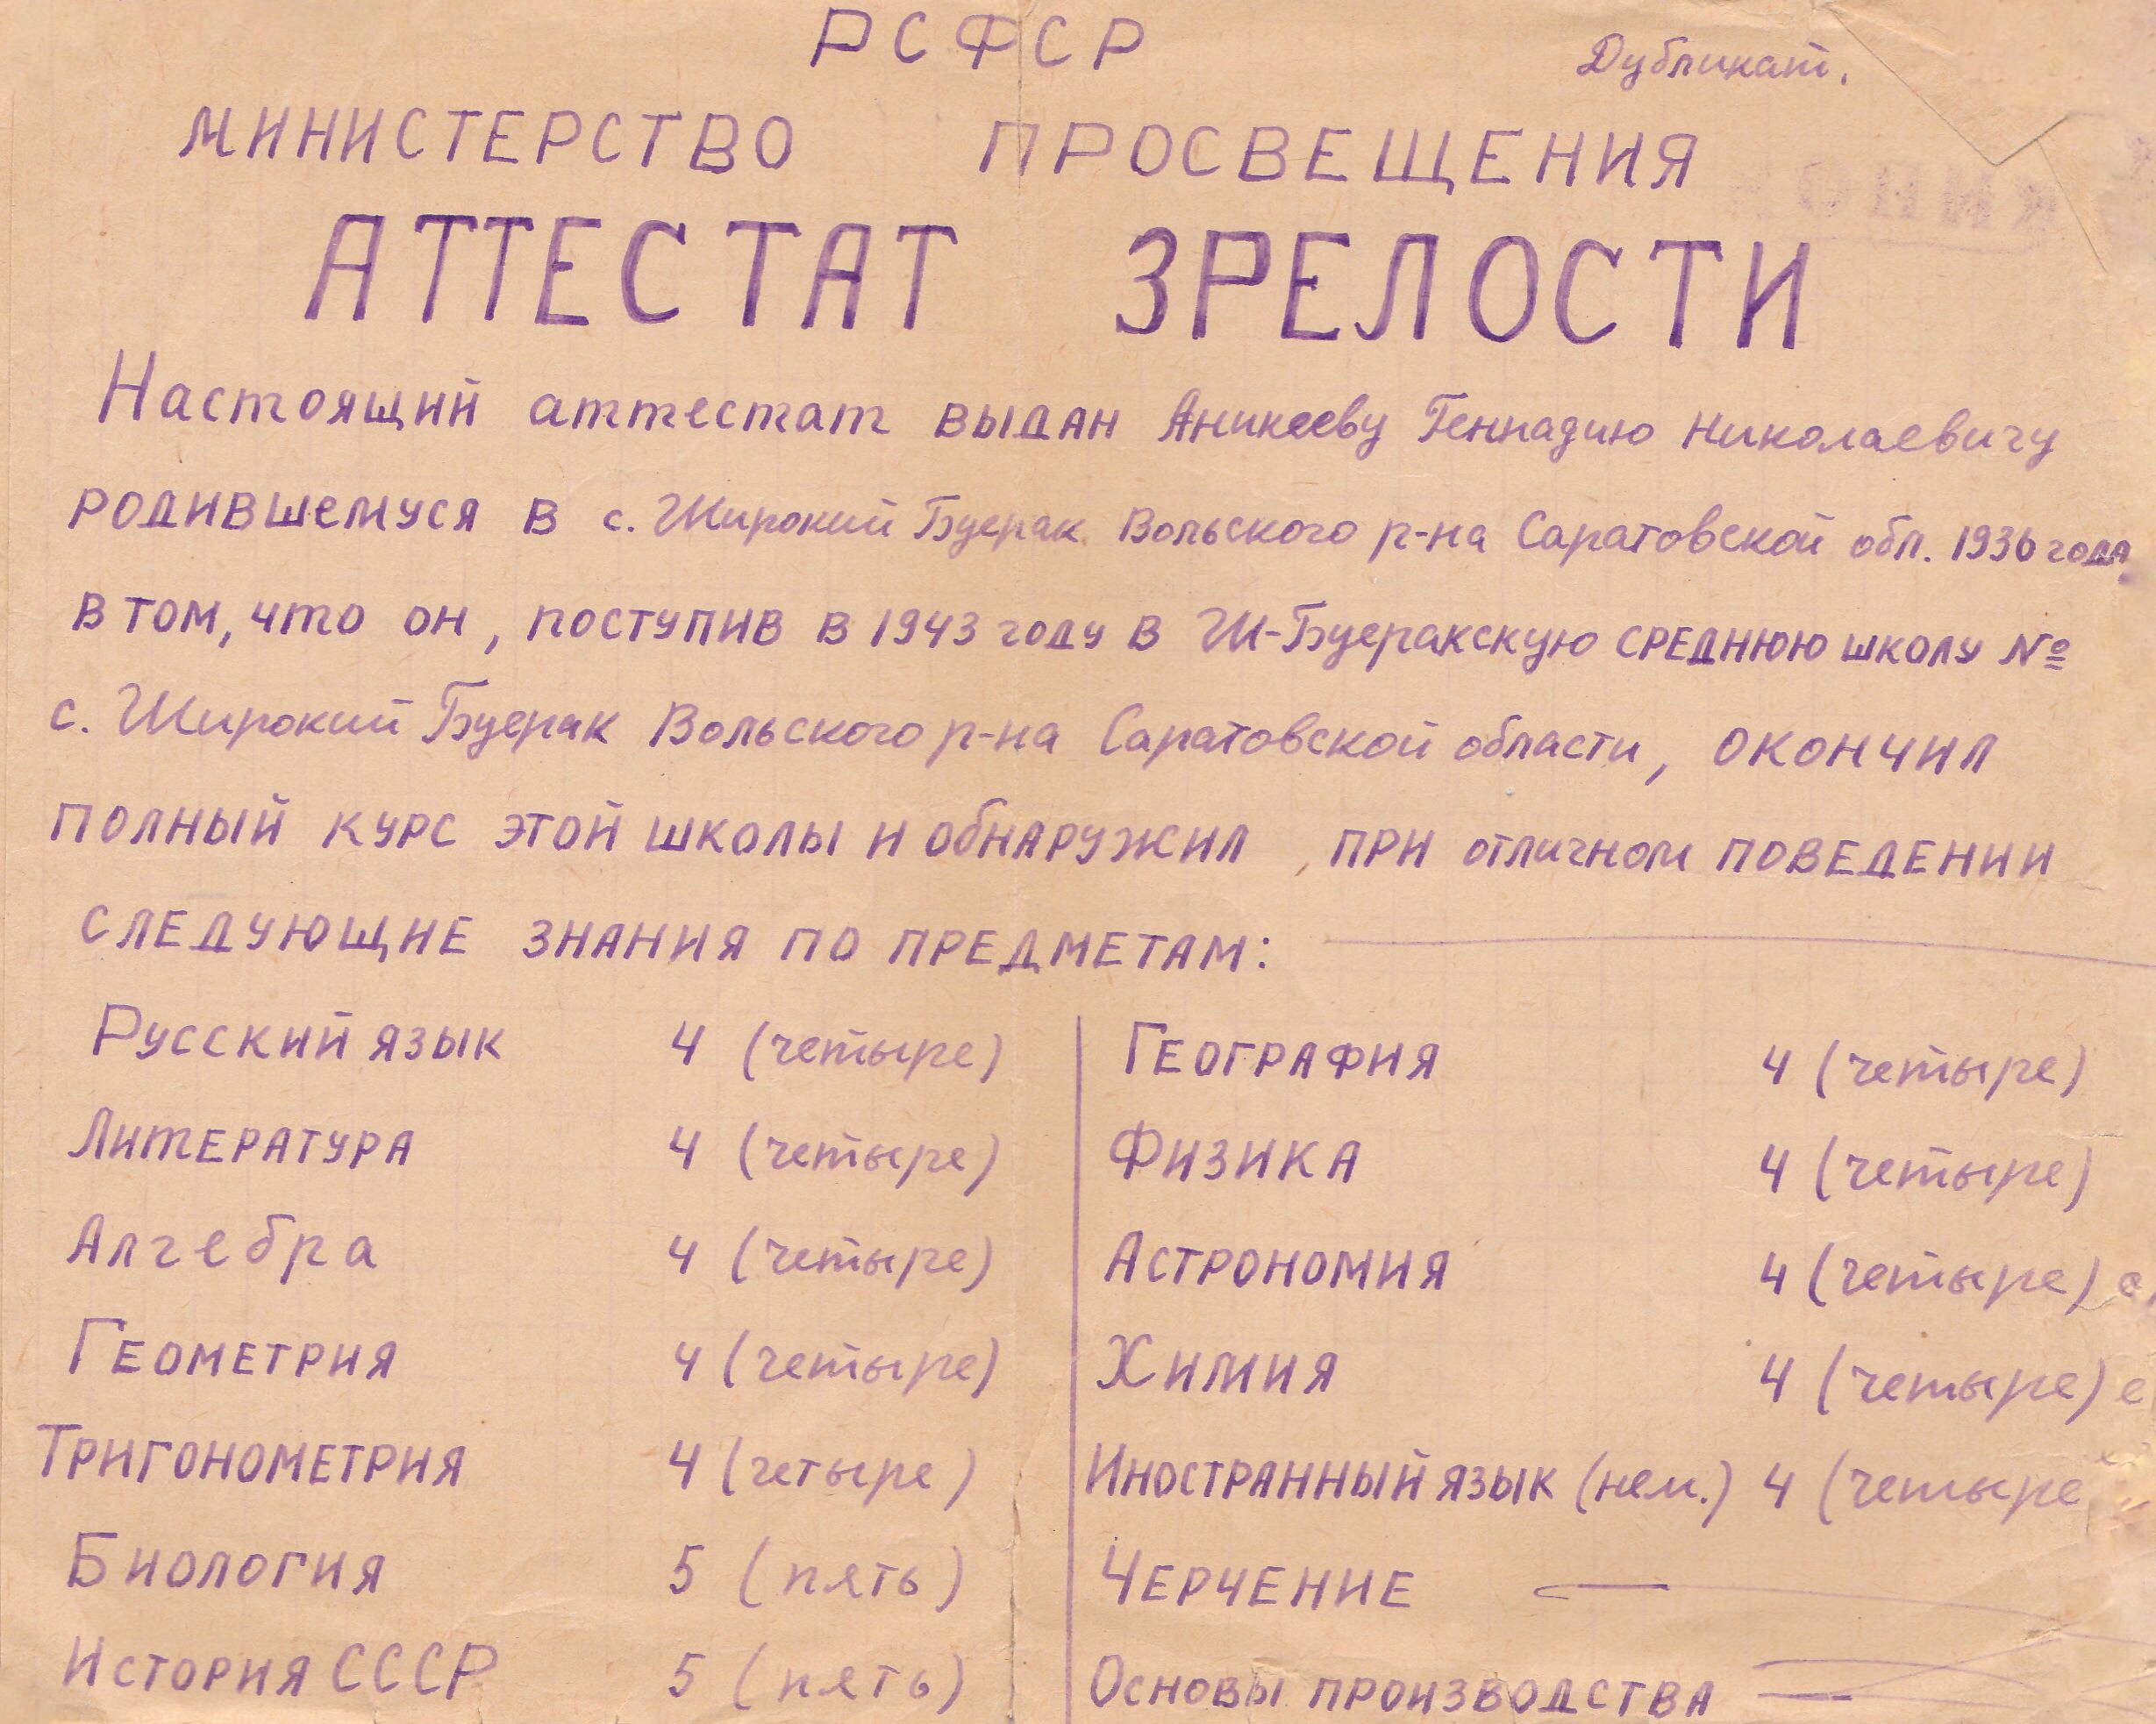 РСФСР
Дубликат.
МИНИСТЕРСТВО ПРОСВЕЩЕНИЯ
АТТЕСТАТ ЗРЕЛОСТИ
Настоящий аттестат выдан Аникееву Геннадию Николаевичу
родившемуся в с. Широкий Буерак Вольского р-на Саратовской обл. 1936 года
в том, что он, поступив в 1943 году в Ш-Буеракскую среднюю школу №
с. Широкий Буерак Вольского р-на Саратовской области, окончил
полный курс этой школы и обнаружил, при отличном поведении
следующие знания по предметам:
Русский язык 4 (четыре)
Литература 4 (четыре)
Алгебра 4 (четыре)
Геометрия 4 (четыре)
Тригонометрия 4 (четыре)
Биология 5 (пять)
История СССР 5 (пять)
География 4 (четыре)
Физика 4 (четыре)
Астрономия 4 (четыре)
Химия 4 (четыре)
Иностранный язык (нем.) 4 (четыре
Черчение —
Основы производства —